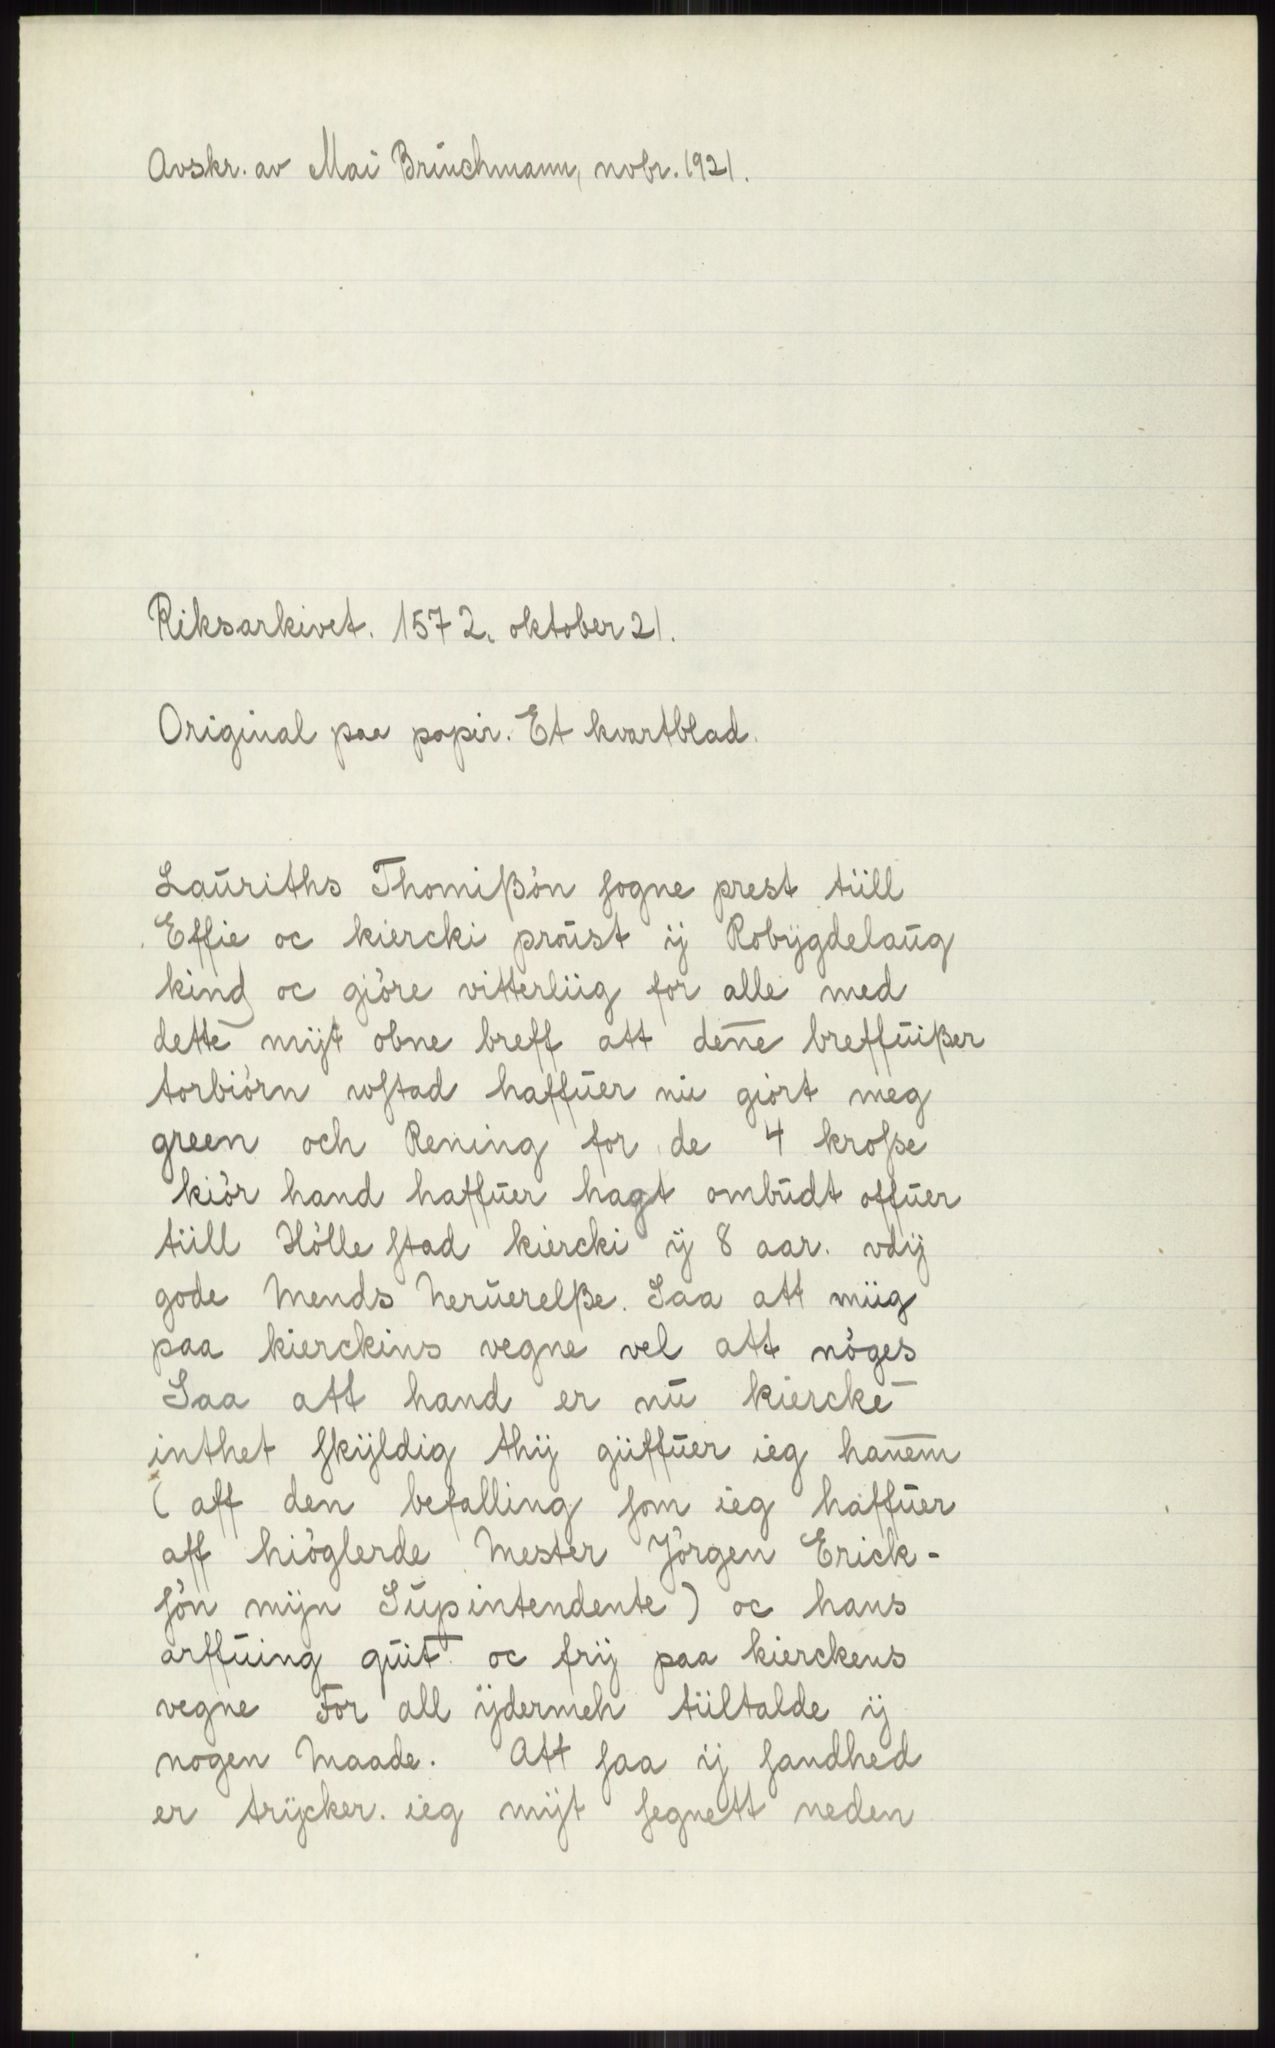 Avskr. av Mai Bruchmann, nobr. 1921.
Riksarkivet. 1572. oktober 21.
Original paa papir. Et kvartblad.
Lauriths Thomißön sogne prest tiill
Effie oc kiercki proust ij Robÿgdelaug
kind oc giöre vitterliig for alle med
dette mijt obne breff att den̄e breffuißer
torbiörn vfstad haffuer nu giört meg
green och Rening for de 4 krosse
kiör hand haffuer hagt ombudt offuer
tiill Hölle stad kiercki ij 8 aar. vdij
gode Mends neruerelße. Saa att miig
paa kierckins vegne vel att nöges
Saa att hand er nu kiercke̅
inthet skÿldig thij giiffuer ieg han̄em
(aff den befalling som ieg haffuer
aff hiöglerde Mester Jörgen Erick-
sön mijn Supintendente) oc hans
arffuing quit oc frij paa kierckens
vegne For all ÿdermeh tiiltalde ij
nogen Maade. Att saa ij sandhed
er trÿcker. ieg mijt segnett neden